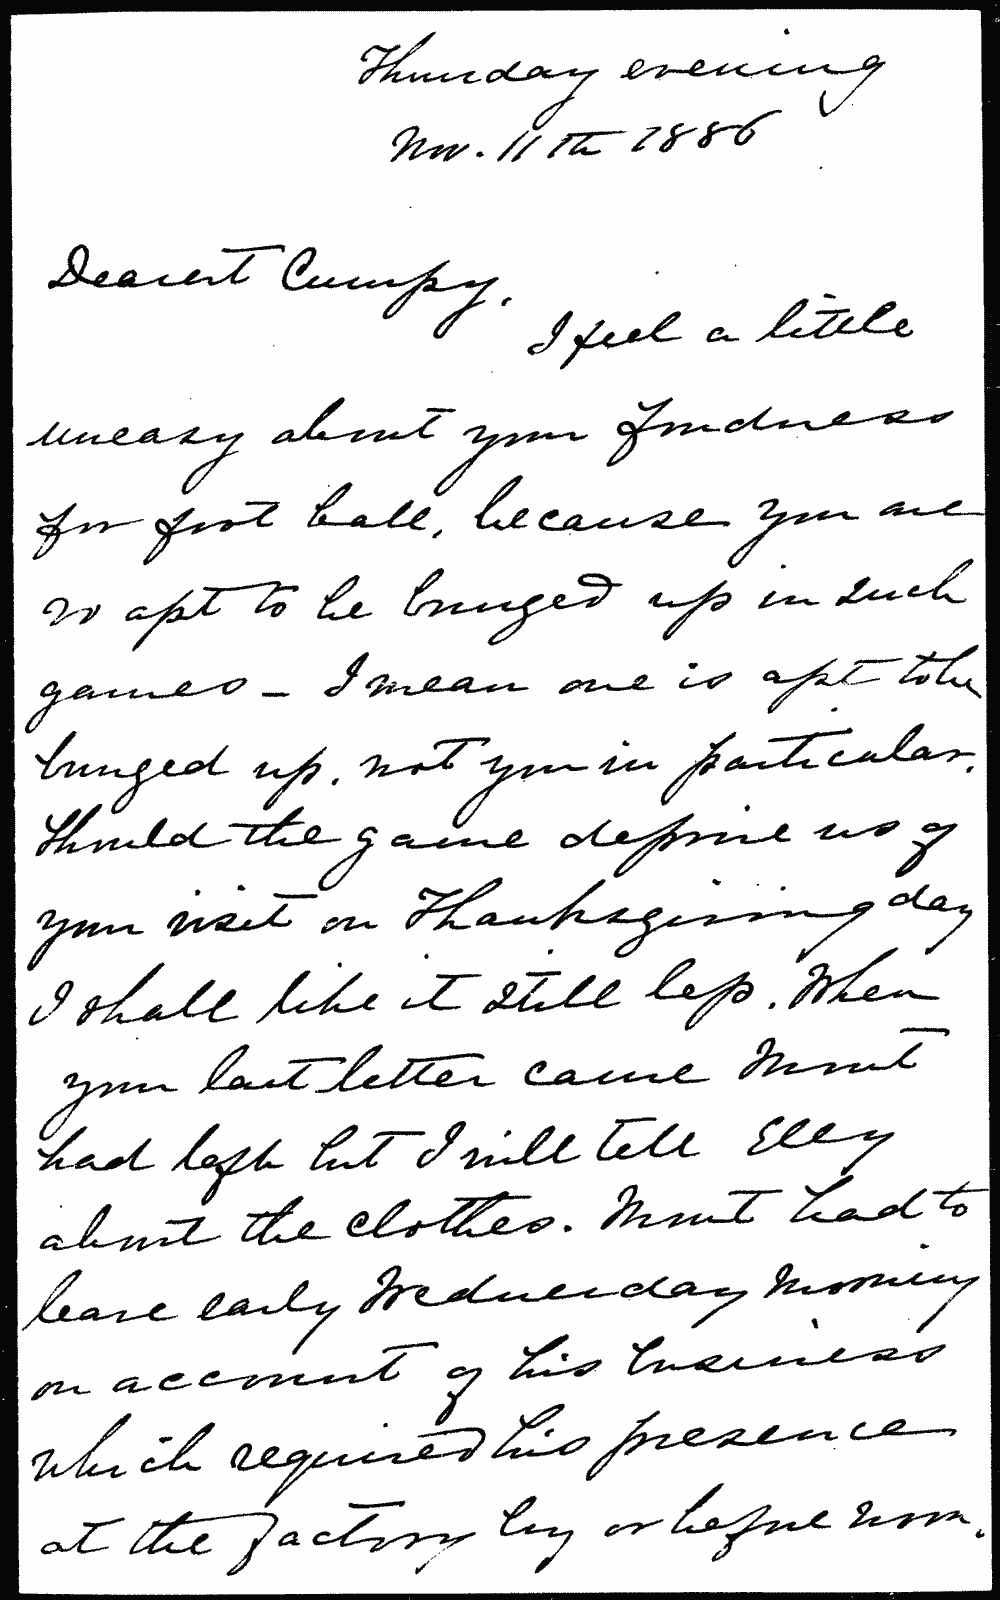 Thursday evening
Nov. 11th 1886
Dearest Cumpy,
I feel a little
uneasy about your fondness
for foot ball, because you are
so apt to be bunged up in such
games – I mean one is apt to be
bunged up, not you in particular.
Should the game deprive us of
your visit on Thanksgiving day
I shall like it still less. When
your last letter came Mout
had left but I will tell Elly
about the clothes. Mout had to
leave early Wednesday morning
on account of his business
which required his presence
at the factory by or before noon.